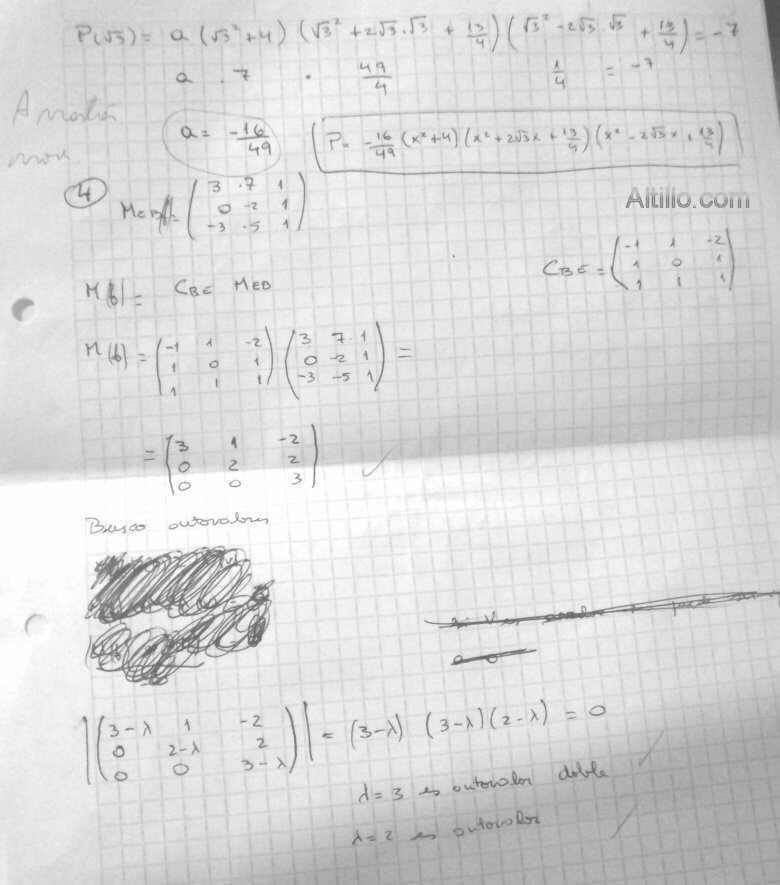 P(√3) = a (√3² + 4) (√3² + 2√3·√3 + 13/4) (√3² - 2√3·√3 + 13/4) = -7
a · 7 · 49/4 1/4 = -7
a = -16/49
P = -16/49 (x² + 4) (x² + 2√3x + 13/4) (x² - 2√3x + 13/4)
4
Altillo.com
3 -7 1
0 -2 1
-3 -5 1
CBE =
-1 1 -2
1 0 1
1 1 1
M(f) = CBE MEB
M(f) =
-1 1 -2
1 0 1
1 1 1
3 7 1
0 -2 1
-3 -5 1
=
=
3 1 -2
0 2 2
0 0 3
Busco autovalores
3-λ 1 -2
0 2-λ 2
0 0 3-λ
= (3-λ) (3-λ)(2-λ) = 0
λ = 3 es autovalor doble
λ = 2 es autovalor